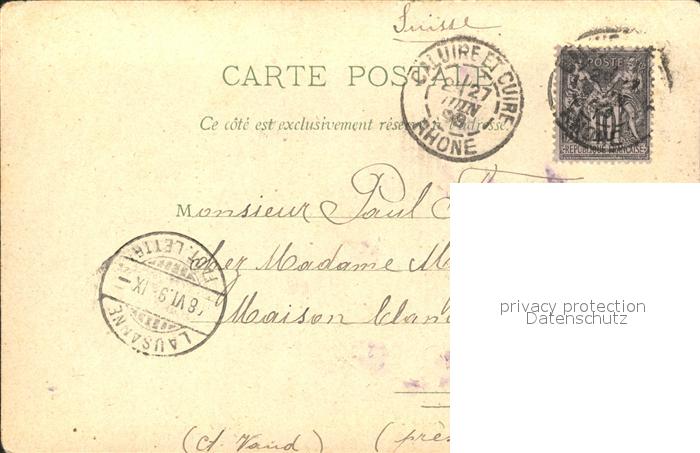 Suisse
CARTE POSTALE
Ce côté est exclusivement réservé à l'adresse.
CALUIRE ET CUIRE
27
JUIN
99
RHONE
POSTES
10
REPUBLIQUE FRANÇAISE
Monsieur Paul
chez Madame
Maison
LAUSANNE
LETTR
VI.9
IX
(Ct. Vaud) (près
privacy protection
Datenschutz